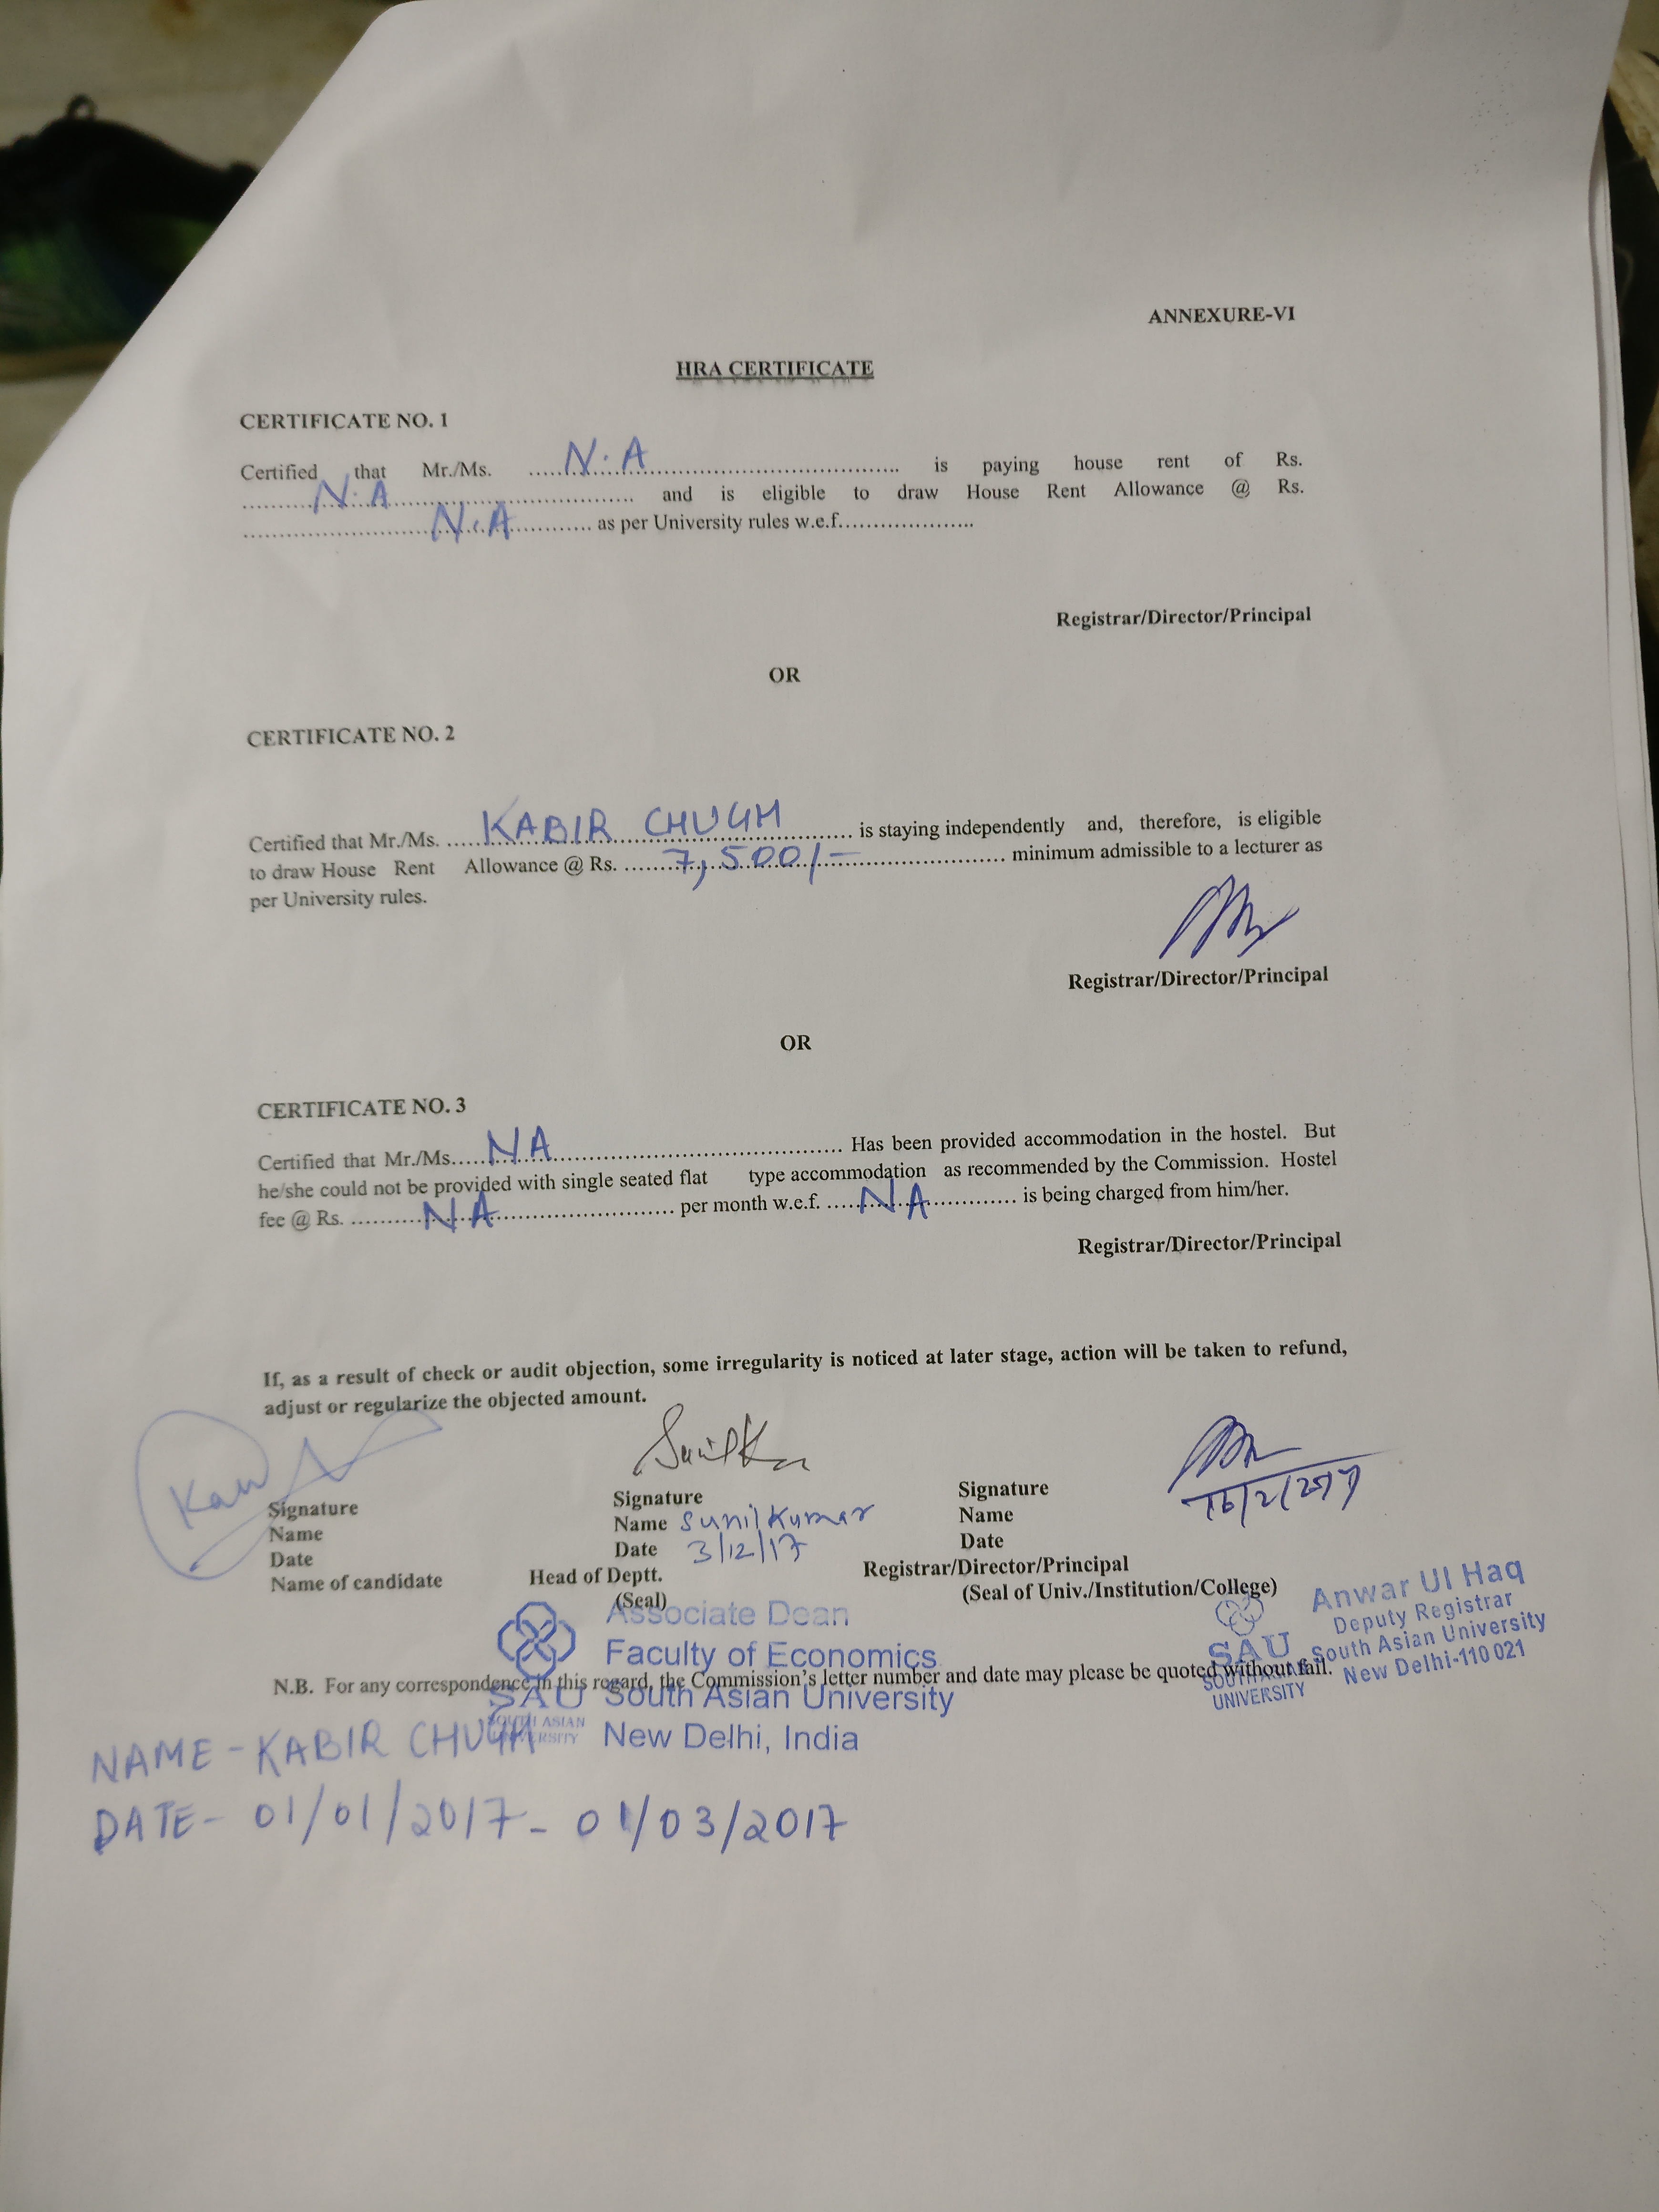 ANNEXURE-VI
HRA CERTIFICATE
CERTIFICATE NO. 1
Certified that Mr./Ms. .....N.A.......................................... is paying house rent of Rs.
..........N.A.................................. and is eligible to draw House Rent Allowance @ Rs.
.............................N.A............. as per University rules w.e.f.....................
Registrar/Director/Principal
OR
CERTIFICATE NO. 2
Certified that Mr./Ms. .....KABIR CHUGH............ is staying independently and, therefore, is eligible
to draw House Rent Allowance @ Rs. .......7,500/-........................ minimum admissible to a lecturer as
per University rules.
Registrar/Director/Principal
OR
CERTIFICATE NO. 3
Certified that Mr./Ms.....NA............................................. Has been provided accommodation in the hostel. But
he/she could not be provided with single seated flat type accommodation as recommended by the Commission. Hostel
fee @ Rs. ..........NA............................ per month w.e.f. ....NA.............. is being charged from him/her.
Registrar/Director/Principal
If, as a result of check or audit objection, some irregularity is noticed at later stage, action will be taken to refund,
adjust or regularize the objected amount.
Signature
Name
Date
Name of candidate
Sunil Ku
Signature
Name Sunil Kumar
Date 3/12/17
Head of Deptt.
(Seal)
Signature
Name
Date
Registrar/Director/Principal
(Seal of Univ./Institution/College)
Associate Dean
Faculty of Economics
South Asian University
New Delhi, India
SAU
SOUTH ASIAN
UNIVERSITY
Anwar Ul Haq
Deputy Registrar
South Asian University
New Delhi-110 021
SAU
SOUTH ASIAN
UNIVERSITY
N.B. For any correspondence in this regard, the Commission's letter number and date may please be quoted without fail.
NAME - KABIR CHUGH
DATE - 01/01/2017 - 01/03/2017